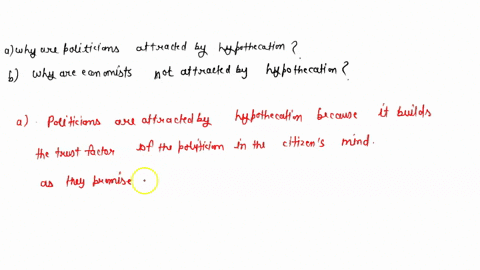 a) why are politicians attracted by hypothecation?
b) why are economists not attracted by hypothecation?
a). Politicians are attracted by hypothecation because it builds
the trust factor of the politician in the citizen's mind.
as they promise